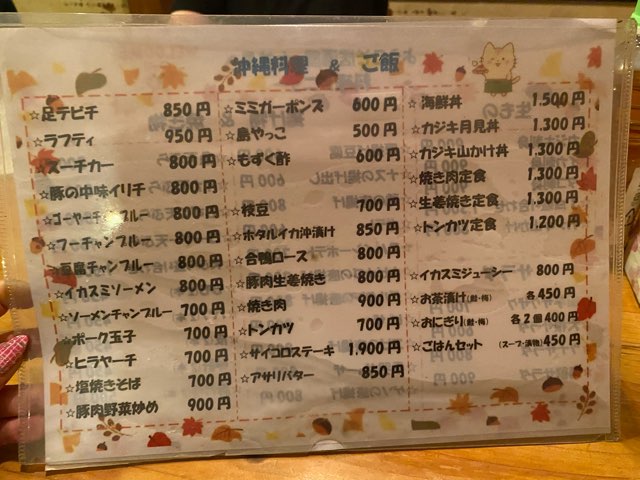 沖縄料理 & ご飯
☆足テビチ 850円
☆ラフティ 950円
☆スーチカー 800円
☆豚の中味イリチ 800円
☆ゴーヤーチャンプルー 800円
☆フーチャンプルー 800円
☆豆腐チャンプルー 800円
☆イカスミソーメン 800円
☆ソーメンチャンプルー 700円
☆ポーク玉子 700円
☆ヒラヤーチ 700円
☆塩焼きそば 700円
☆豚肉野菜炒め 900円
☆ミミガーポンズ 600円
☆島やっこ 500円
☆もずく酢 600円
☆枝豆 700円
☆ホタルイカ沖漬け 850円
☆合鴨ロース 800円
☆豚肉生姜焼き 800円
☆焼き肉 900円
☆トンカツ 700円
☆サイコロステーキ 1,900円
☆アサリバター 850円
☆海鮮丼 1.500円
☆カジキ月見丼 1.300円
☆カジキ山かけ丼 1.300円
☆焼き肉定食 1.300円
☆生姜焼き定食 1.300円
☆トンカツ定食 1.200円
☆イカスミジューシー 800円
☆お茶漬け(鮭・梅) 各450円
☆おにぎり(鮭・梅) 各2個400円
☆ごはんセット (スープ・漬物)450円